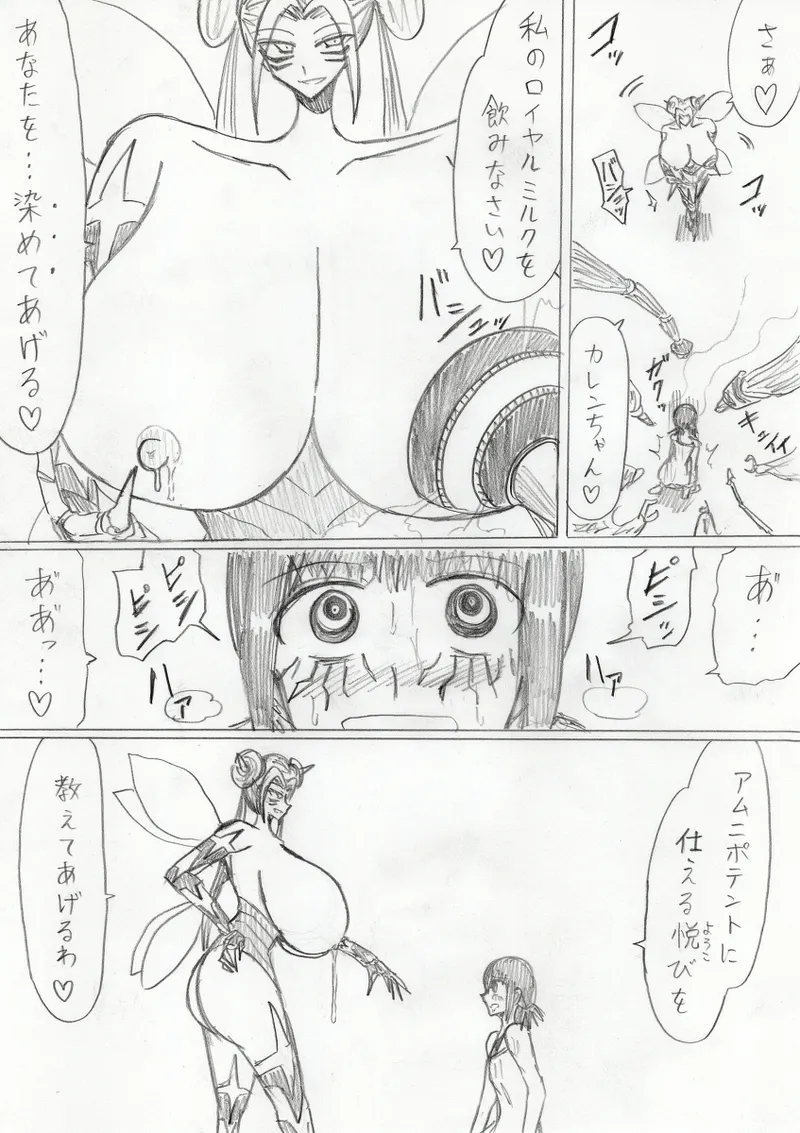 さぁ♡
コッ
コッ
バキッ
カレンちゃん♡
ガクッ
キッイイ
私のロイヤルミルクを
飲みなさい♡
バキュッ
あなたを…染めてあげる♡
あ゛…
ピシッ
ハァ
ピシピシ
ハァ
あ゛あ゛っ…♡
アムニポテントに
仕える悦びを
ようこ
教えてあげるわ♡